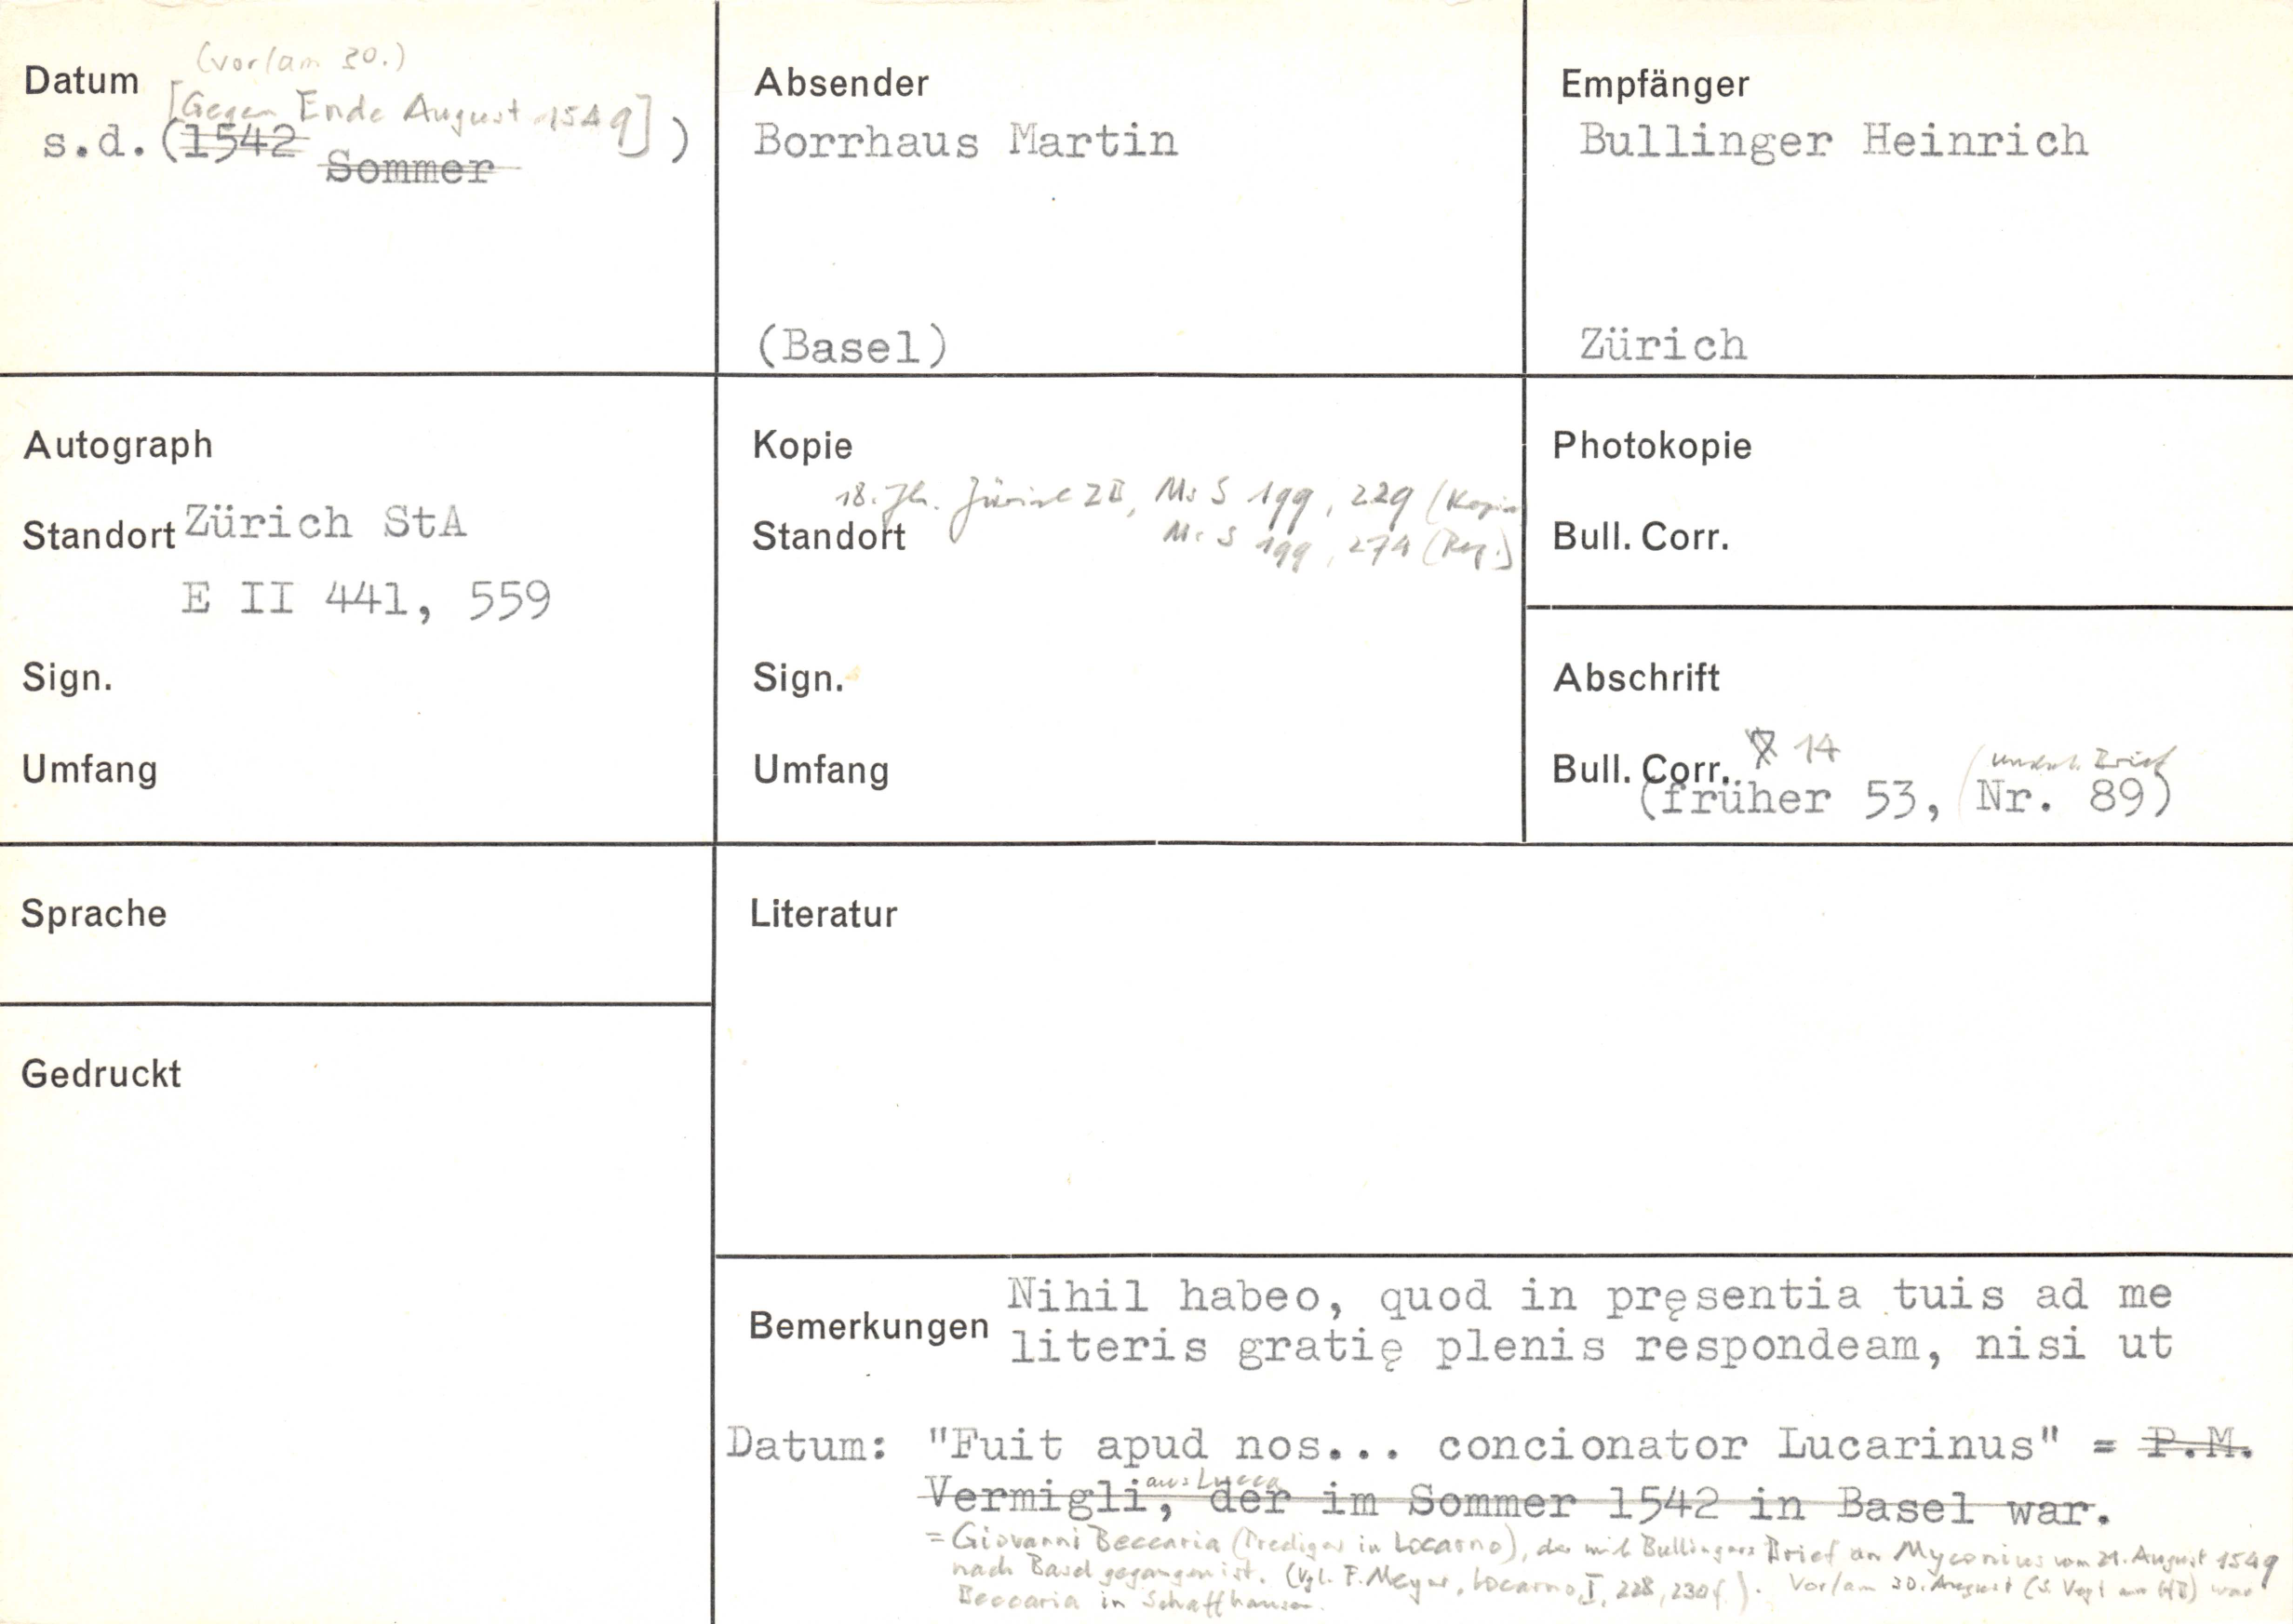 Datum
(vor/am 30.)
[Gegen Ende August 1549]
s.d. (1542 )
Sommer
Absender
Borrhaus Martin
(Basel)
Empfänger
Bullinger Heinrich
Zürich
Autograph
Standort Zürich StA
E II 441, 559
Sign.
Umfang
Kopie
18. Jh. Zürich ZB, Ms S 199, 229 (Kopie
Standort
Ms S 199, 274 (Reg.)
Sign.
Umfang
Photokopie
Bull. Corr.
Abschrift
Bull. Corr. 14
(früher 53, Nr. 89)
Sprache
Gedruckt
Literatur
Bemerkungen
Nihil habeo, quod in pręsentia tuis ad me
literis gratię plenis respondeam, nisi ut
Datum: "Fuit apud nos... concionator Lucarinus" = P.M.
aus Lucca
Vermigli, der im Sommer 1542 in Basel war.
= Giovanni Beccaria (Prediger in Locarno), der mit Bullingers Brief an Myconius vom 21. August 1549
nach Basel gegangen ist. (Vgl. F. Meyer, Locarno, I, 228, 230f.). Vor/am 30. August (s. Vogt an HB) war
Beccaria in Schaffhausen.